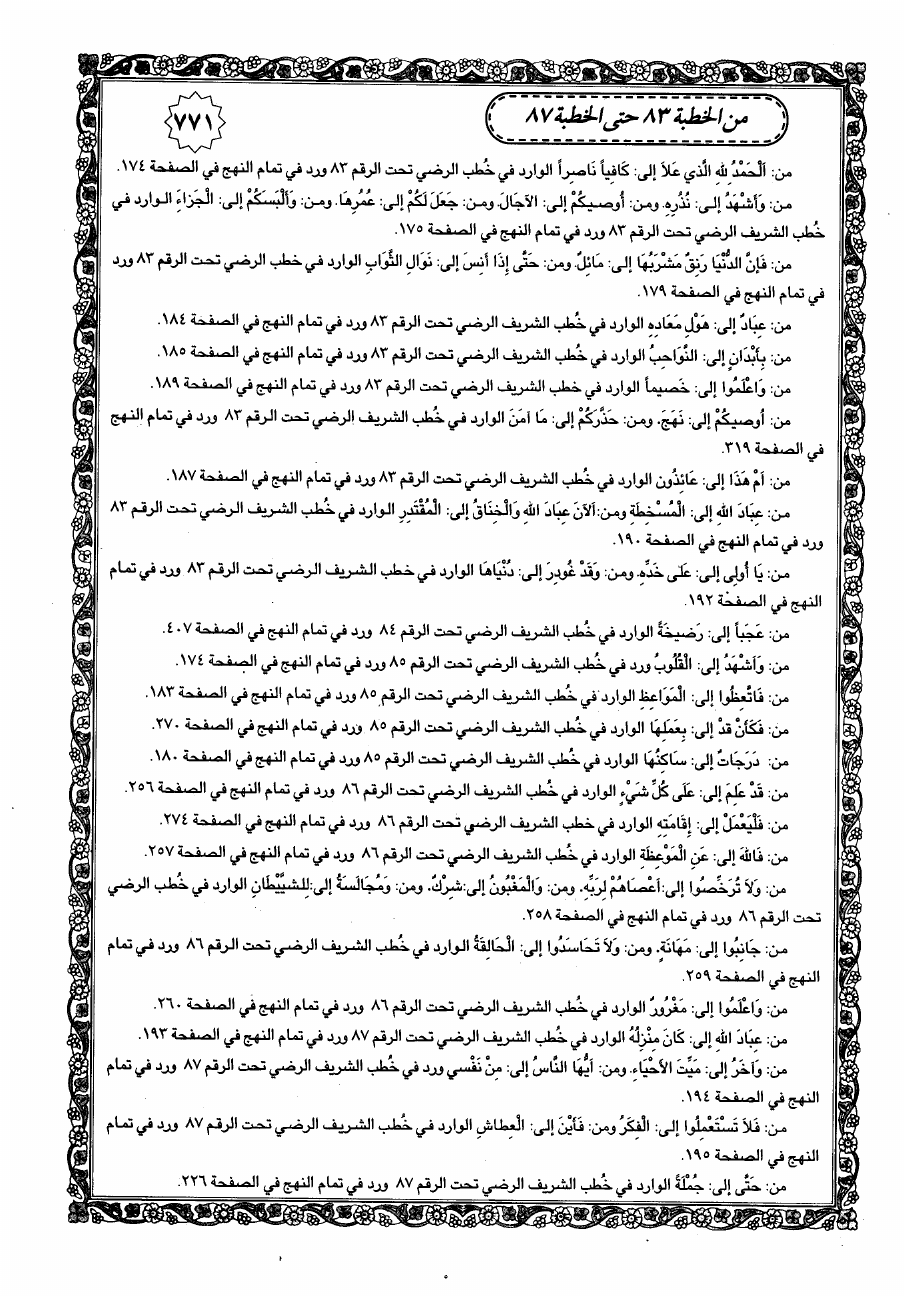 من الخطبة ٨٣ حتى الخطبة ٨٧
٧٧١
من: اَلْحَمْدُ لِلهِ الَّذي عَلاَ إلى: كَافِياً نَاصِراً الوارد في خُطب الرضي تحت الرقم ٨٣ ورد في تمام النهج في الصفحة ١٧٤.
من: وَأَشْهَدُ إلى: نُذُرِهِ. ومن: أُوصيكُمْ إلى: الآجَالَ. ومن: جَعَلَ لَكُمْ إلى: عُمُرِهَا. ومن: وَأَلْبَسَكُمْ إلى: الْجَزَاءَ الوارد في
خُطب الشريف الرضي تحت الرقم ٨٣ ورد في تمام النهج في الصفحة ١٧٥.
من: فَإِنَّ الدُّنْيَا رَنِقٌ مَشْرَبُهَا إلى: مَائِلٌ. ومن: حَتَّى إِذَا أَنِسَ إلى: نَوَالِ الثَّوَابِ الوارد في خطب الرضي تحت الرقم ٨٣ ورد
في تمام النهج في الصفحة ١٧٩.
من: عِبَادٌ إلى: هَوْلِ مَعَادِهِ الوارد في خُطب الشريف الرضي تحت الرقم ٨٣ ورد في تمام النهج في الصفحة ١٨٤.
من: بِأَبْدَانٍ إلى: النَّوَاحِبُ الوارد في خُطب الشريف الرضي تحت الرقم ٨٣ ورد في تمام النهج في الصفحة ١٨٥.
من: وَاعْلَمُوا إلى: خَصيماً الوارد في خطب الشريف الرضي تحت الرقم ٨٣ ورد في تمام النهج في الصفحة ١٨٩.
من: أُوصيكُمْ إلى: نَهَجَ. ومن: حَذَّرَكُمْ إلى: مَا آمَنَ الوارد في خُطب الشريف الرضي تحت الرقم ٨٣ ورد في تمام النهج
في الصفحة ٣١٩.
من: أَمْ هَذَا إلى: عَائِذُون الوارد في خُطب الشريف الرضي تحت الرقم ٨٣ ورد في تمام النهج في الصفحة ١٨٧.
من: عِبَادَ اللهِ إلى: الْمُسْخِطَةِ ومن: اَلآنَ عِبَادَ اللهِ وَالْخِنَاقُ إلى: الْمُقْتَدِرِ الوارد في خُطب الشريف الرضي تحت الرقم ٨٣
ورد في تمام النهج في الصفحة ١٩٠.
من: يَا أُولِي إلى: عَلَى خَدِّهِ. ومن: وَقَدْ غُودِرَ إلى: دُنْيَاهَا الوارد في خطب الشريف الرضي تحت الرقم ٨٣ ورد في تمام
النهج في الصفحة ١٩٢.
من: عَجَباً إلى: رَضيخَةً الوارد في خُطب الشريف الرضي تحت الرقم ٨٤ ورد في تمام النهج في الصفحة ٤٠٧.
من: وَأَشْهَدُ إلى: الْقُلُوبُ ورد في خُطب الشريف الرضي تحت الرقم ٨٥ ورد في تمام النهج في الصفحة ١٧٤.
من: فَاتَّعِظُوا إلى: الْمَوَاعِظِ الوارد في خُطب الشريف الرضي تحت الرقم ٨٥ ورد في تمام النهج في الصفحة ١٨٣.
من: فَكَأَنْ قَدْ إلى: بِعَمَلِهَا الوارد في خُطب الشريف الرضي تحت الرقم ٨٥ ورد في تمام النهج في الصفحة ٢٧٠.
من: دَرَجَاتٌ إلى: سَاكِنُهَا الوارد في خُطب الشريف الرضي تحت الرقم ٨٥ ورد في تمام النهج في الصفحة ١٨٠.
من: قَدْ عَلِمَ إلى: عَلَى كُلِّ شَيْءٍ الوارد في خُطب الشريف الرضي تحت الرقم ٨٦ ورد في تمام النهج في الصفحة ٢٥٦.
من: فَلْيَعْمَلْ إلى: إِقَامَتِهِ الوارد في خطب الشريف الرضي تحت الرقم ٨٦ ورد في تمام النهج في الصفحة ٢٧٤.
من: فَاللهَ إلى: عَنِ الْمَوْعِظَةِ الوارد في خُطب الشريف الرضي تحت الرقم ٨٦ ورد في تمام النهج في الصفحة ٢٥٧.
من: وَلاَ تُرَخِّصُوا إلى: أَعْصَاهُمْ لِرَبِّهِ. ومن: وَالْمَغْبُونُ إلى: شِرْكٌ. ومن: وَمُجَالَسَةُ إلى: لِلشَّيْطَانِ الوارد في خُطب الرضي
تحت الرقم ٨٦ ورد في تمام النهج في الصفحة ٢٥٨.
من: جَانِبُوا إلى: مَهَانَةٍ. ومن: وَلاَ تَحَاسَدُوا إلى: الْحَالِقَةُ الوارد في خُطب الشريف الرضي تحت الرقم ٨٦ ورد في تمام
النهج في الصفحة ٢٥٩.
من: وَاعْلَمُوا إلى: مَغْرُورٌ الوارد في خُطب الشريف الرضي تحت الرقم ٨٦ ورد في تمام النهج في الصفحة ٢٦٠.
من: عِبَادَ اللهِ إلى: كَانَ مَنْزِلُهُ الوارد في خُطب الشريف الرضي تحت الرقم ٨٧ ورد في تمام النهج في الصفحة ١٩٣.
من: وَآخَرُ إلى: مَيِّتَ الأَحْيَاءِ. ومن: أَيُّهَا النَّاسُ إلى: مِنْ نَفْسي ورد في خُطب الشريف الرضي تحت الرقم ٨٧ ورد في تمام
النهج في الصفحة ١٩٤.
من: فَلاَ تَسْتَعْمِلُوا إلى: الْفِكَرُ ومن: فَأَيْنَ إلى: الْعِطَاشِ الوارد في خُطب الشريف الرضي تحت الرقم ٨٧ ورد في تمام
النهج في الصفحة ١٩٥.
من: حَتَّى إلى: جُمْلَةً الوارد في خُطب الشريف الرضي تحت الرقم ٨٧ ورد في تمام النهج في الصفحة ٢٢٦.